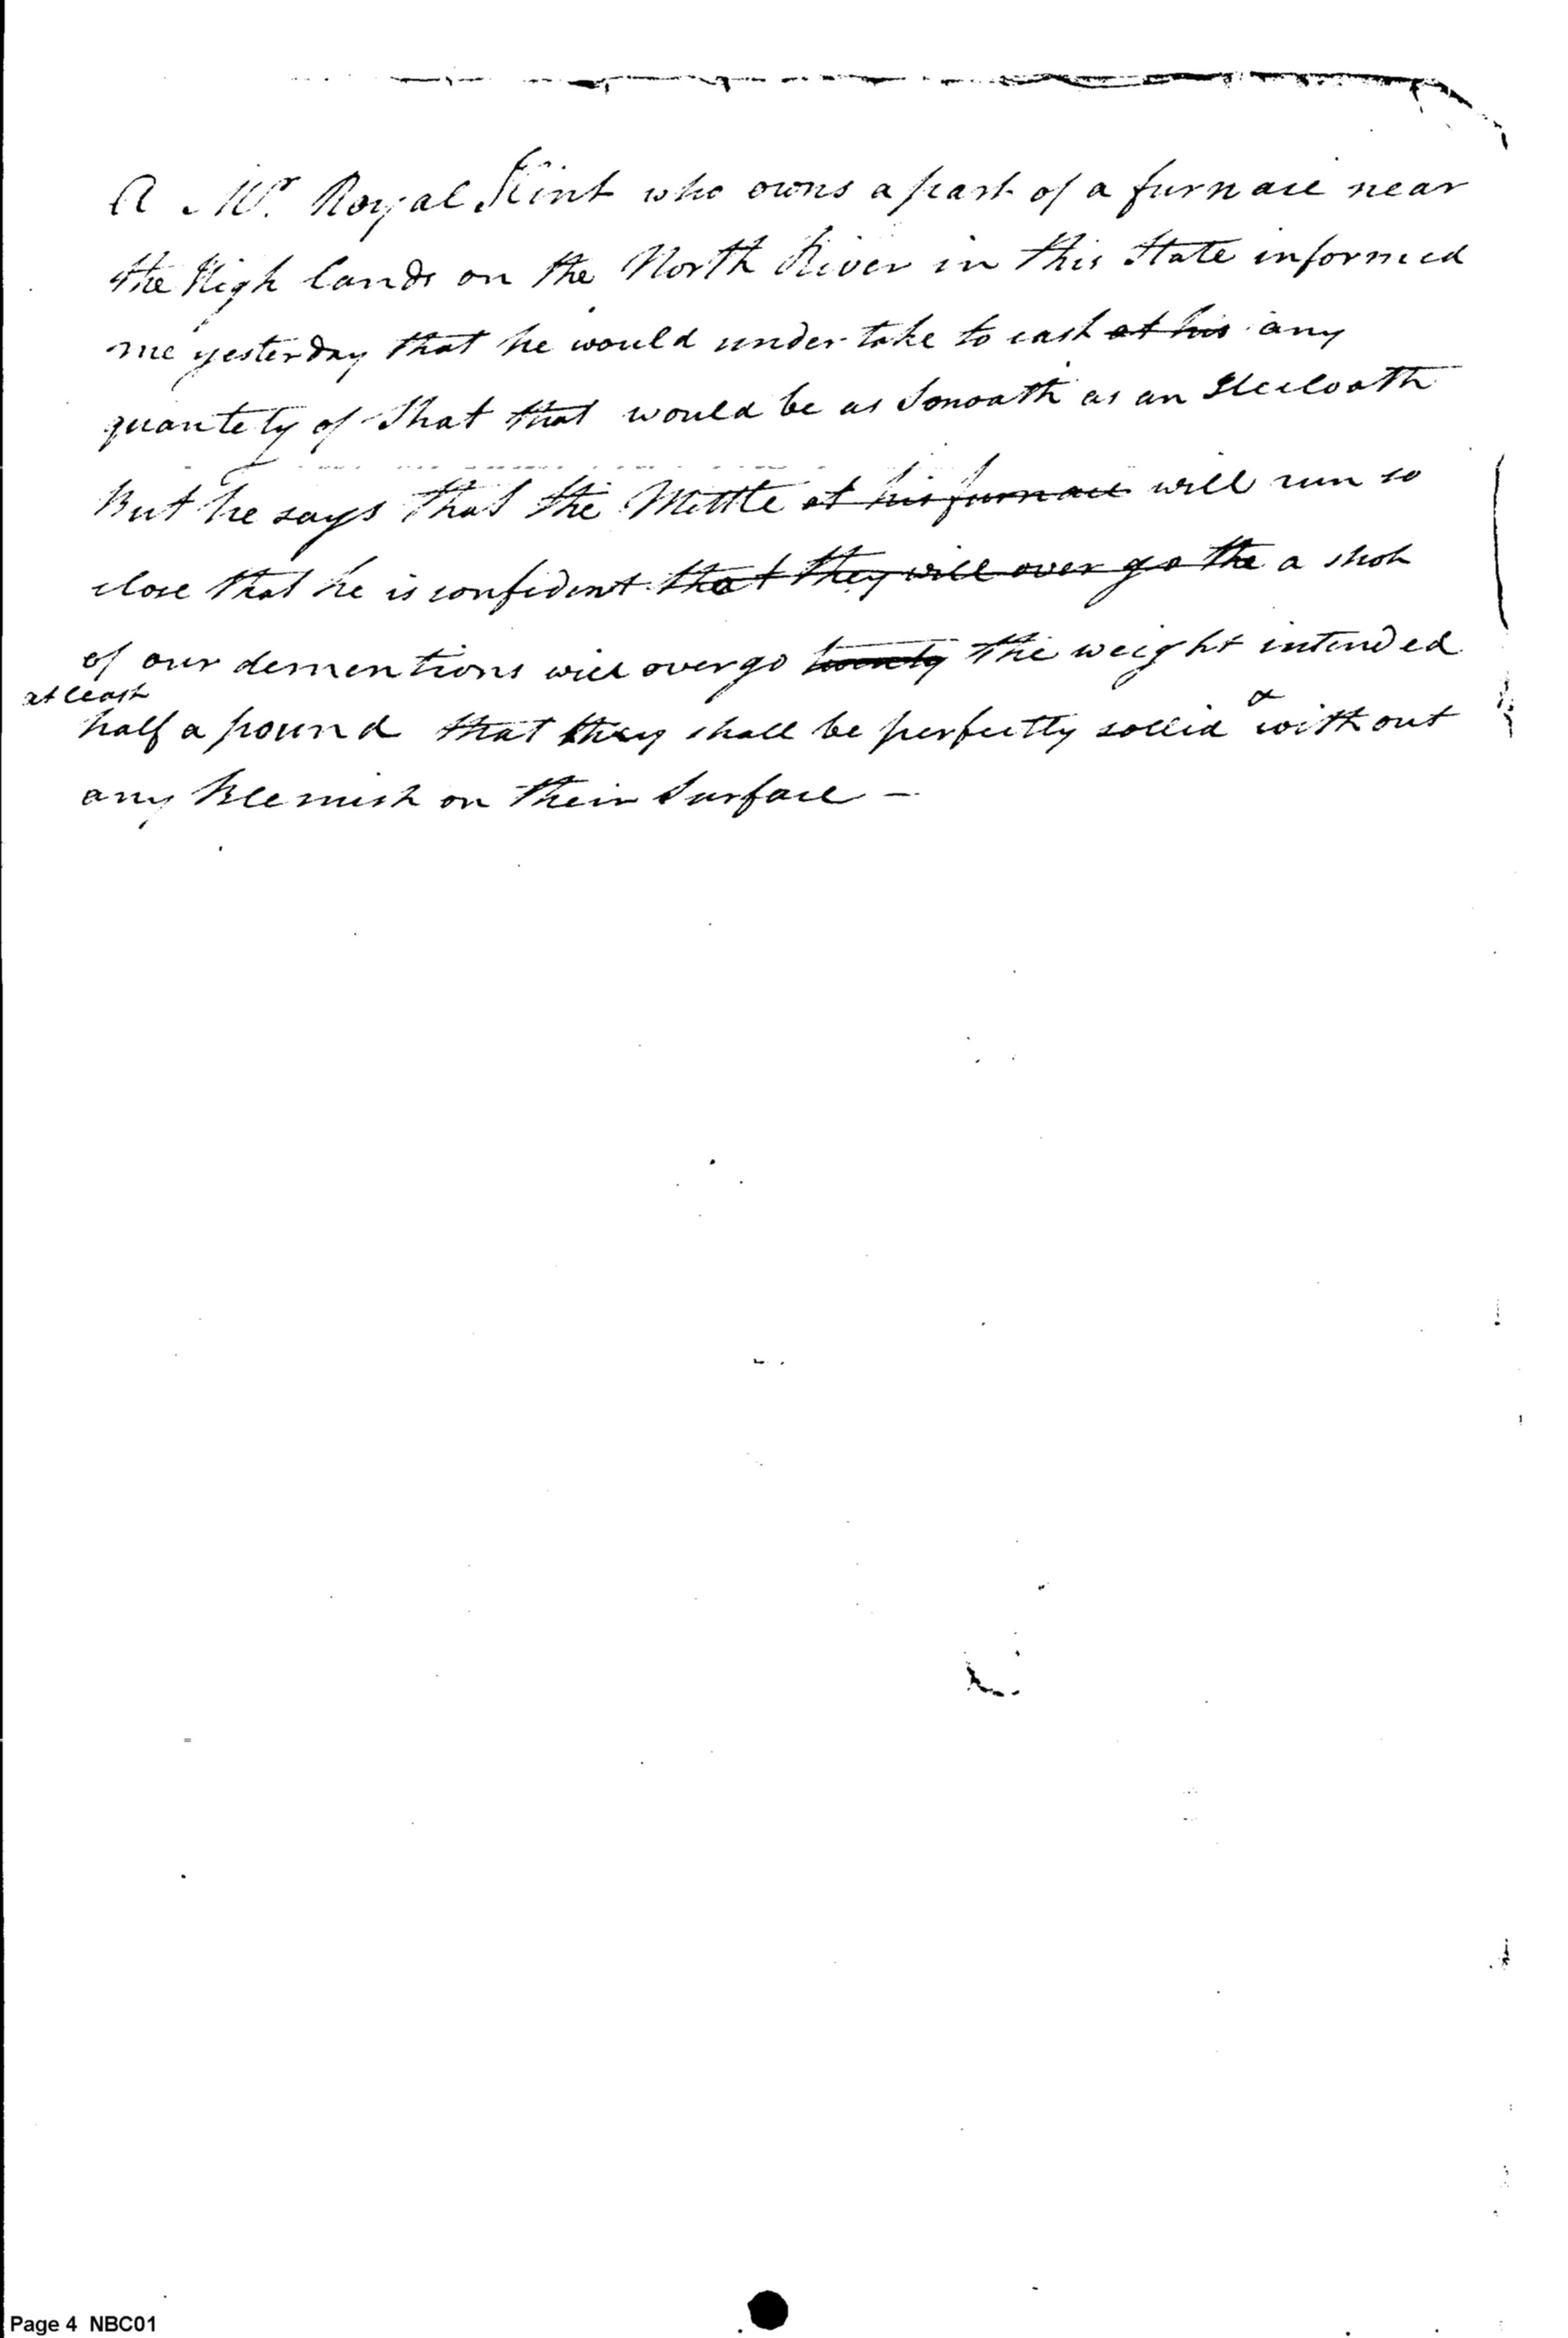 A Mr. Royal Flint who owns a part of a furnace near
the High lands on the North River in this State informed
me yesterday that he would under take to cast at his any
quantety of Shot that would be as Smoath as an
But he says that the Mettle at his furnace will run so
close that he is confident that they will over go the a shot
of our dementions will over go twenty the weight intended
at least
half a pound that they shall be perfectly sollid & without
any Blemish on their Surface —
Page 4 NBC01